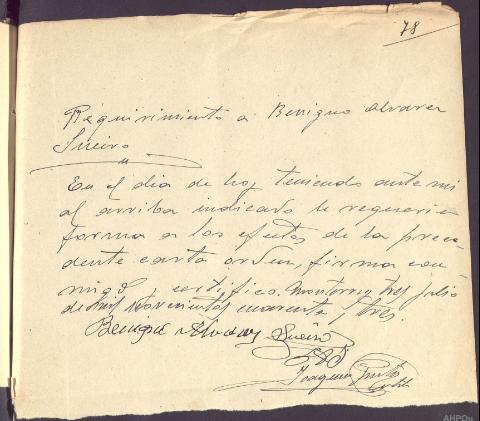 78
Requirimiento a Benigno Alvarez
Sueiro
En el dia de hoy teniendo ante mi
al arriba indicado le requeri e
forma a los efectos de la prece
dente carta orden, firma con
migo, certifico. Monterrey tres julio
de mil novecientos cuarenta y tres.
Benigno Alvarez Sueiro
Joaquin
AHPOu